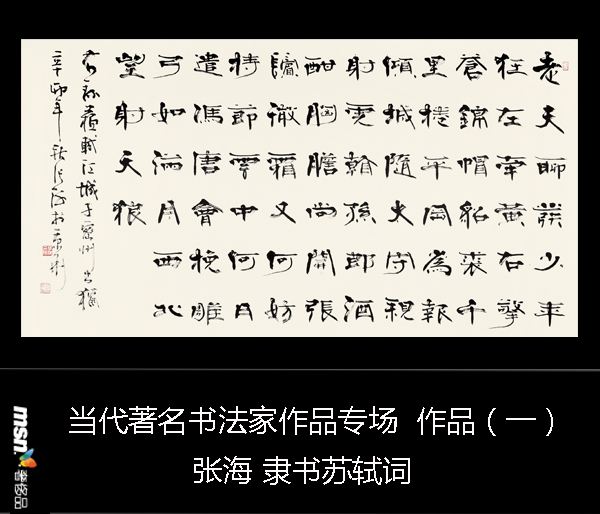 老夫聊發少年
狂左牽黃右擎
蒼錦帽貂裘千
里捲平岡為報
傾城隨太守親
射虎看孫郎酒
酣胸膽尚開張
鬢微霜又何妨
持節雲中何月
遣馮唐會挽雕
弓如滿月西北
望射天狼
右錄蘇軾江城子密州出獵
辛卯年秋張海於京
msn 奢侈品
当代著名书法家作品专场 作品（一）
张海 隶书苏轼词